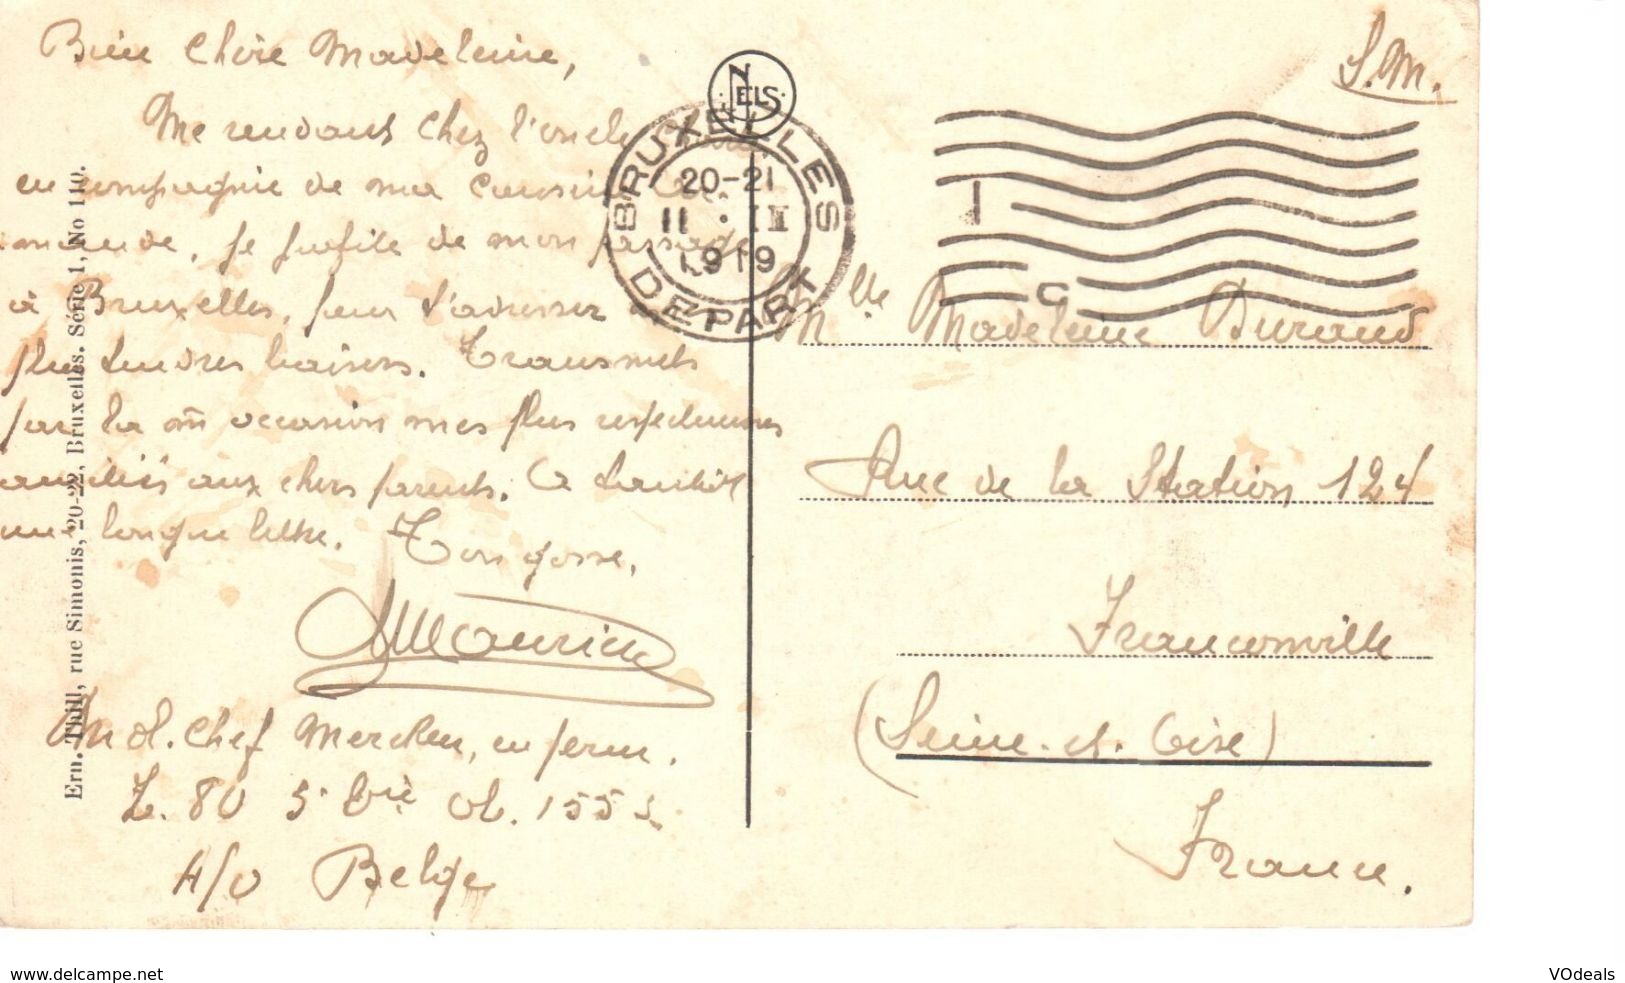 Bien Chère Madeleine,
Me rendant chez l'oncle
en compagnie de ma cousine
je profite de mon passage
à Bruxelles, pour t'adresser
plus tendres baisers. Transmets
par la m̄ occasion mes plus respectueuses
amitiés aux chers parents. A bientôt
une longue lettre. Ton gosse,
Maurice
M d. L. Chef Mercken, en perm.
Z. 80 5e Bie Ob. 155 L
A/O Belge
Ern. Thill, rue Simonis, 20-22, Bruxelles. Série 1, No 110.
NELS
BRUXELLES
20-21
11 . III
1919
DEPART
S.M.
Mlle Madeleine Durand
Rue de la Station 124
Franconville
(Seine-et-Oise)
France.
www.delcampe.net
VOdeals